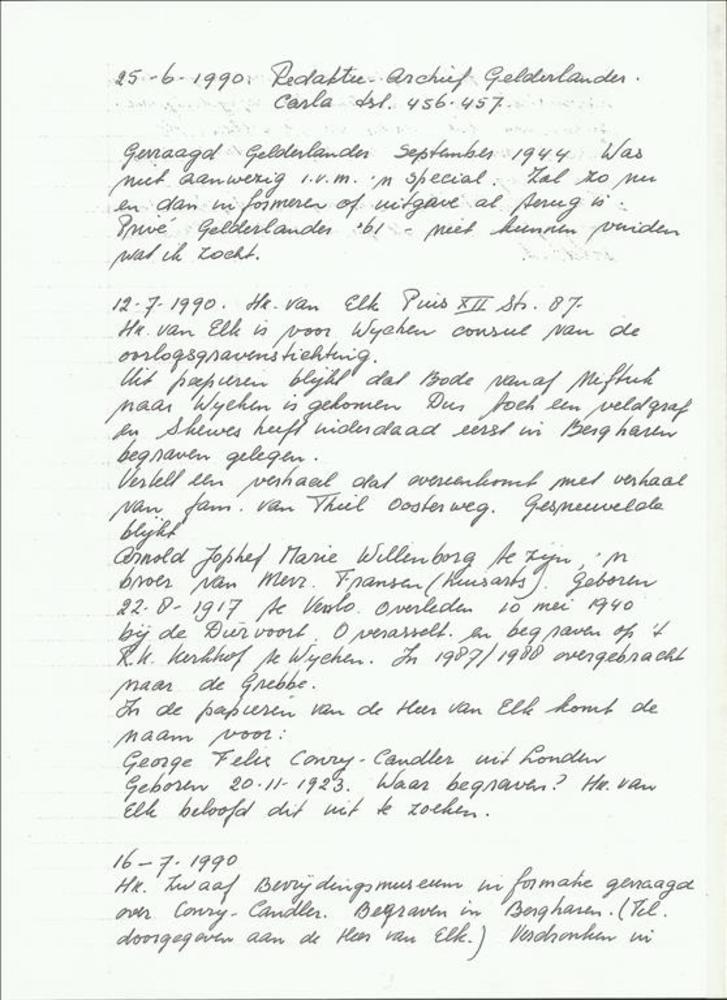 25-6-1990. Redaktie-archief Gelderlander.
Carla tsl. 456-457.
Gevraagd Gelderlander September 1944 Was
niet aanwezig i.v.m. 'n special. Zal zo nu
en dan informeren of uitgave al terug is.
Privé Gelderlander '61 - niet kunnen vinden
wat ik zocht.
12-7-1990. Hr. van Elk Pius XII Str. 87.
Hr. van Elk is voor Wychen consul van de
oorlogsgravenstichting.
Uit papieren blijkt dat Bode vanaf Niftrik
naar Wychen is gekomen Dus toch een veldgraf
en Skewes heeft inderdaad eerst in Bergharen
begraven gelegen.
Vertelt een verhaal dat overeenkomt met verhaal
van fam. van Thiel Oosterweg. Gesneuvelde
blijkt
Arnold Jophef Marie Willenborg te zijn, 'n
broer van Mevr. Fransen (Huisarts). Geboren
22-8-1917 te Venlo. Overleden 10 mei 1940
bij de Diervoort, Overasselt. en begraven op 't
R.K. Kerkhof te Wychen. In 1987/1988 overgebracht
naar de Grebbe.
In de papieren van de Heer van Elk komt de
naam voor:
George Felix Conry-Candler uit Londen
Geboren 20-11-1923. Waar begraven? Hr. van
Elk beloofd dit uit te zoeken.
16-7-1990
Hr. Zwaaf Bevrijdingsmuseum informatie gevraagd
over Conry-Candler. Begraven in Bergharen. (Tel.
doorgegeven aan de Heer van Elk.) Verdronken in